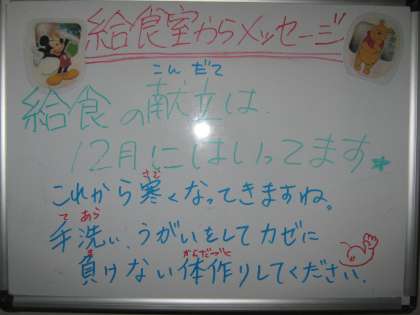 給食室からメッセージ
こんだて
給食の献立は
12月にはいってます★
さむ
これから寒くなってきますね。
てあら
手洗い、うがいをしてカゼに
ま からだづく
負けない体作りしてください。